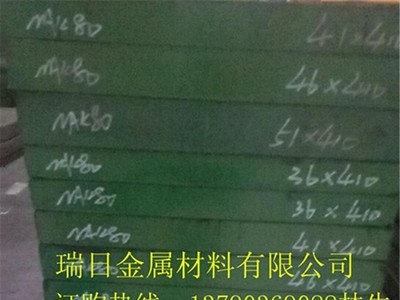 NAK80 41×410
NAK80 46×410
NAK80 51×410
NAK80 36×410
NAK80 36×410
NAK80 41×410
NAK80 46×410
瑞日金属材料有限公司
订购热线：13790360098